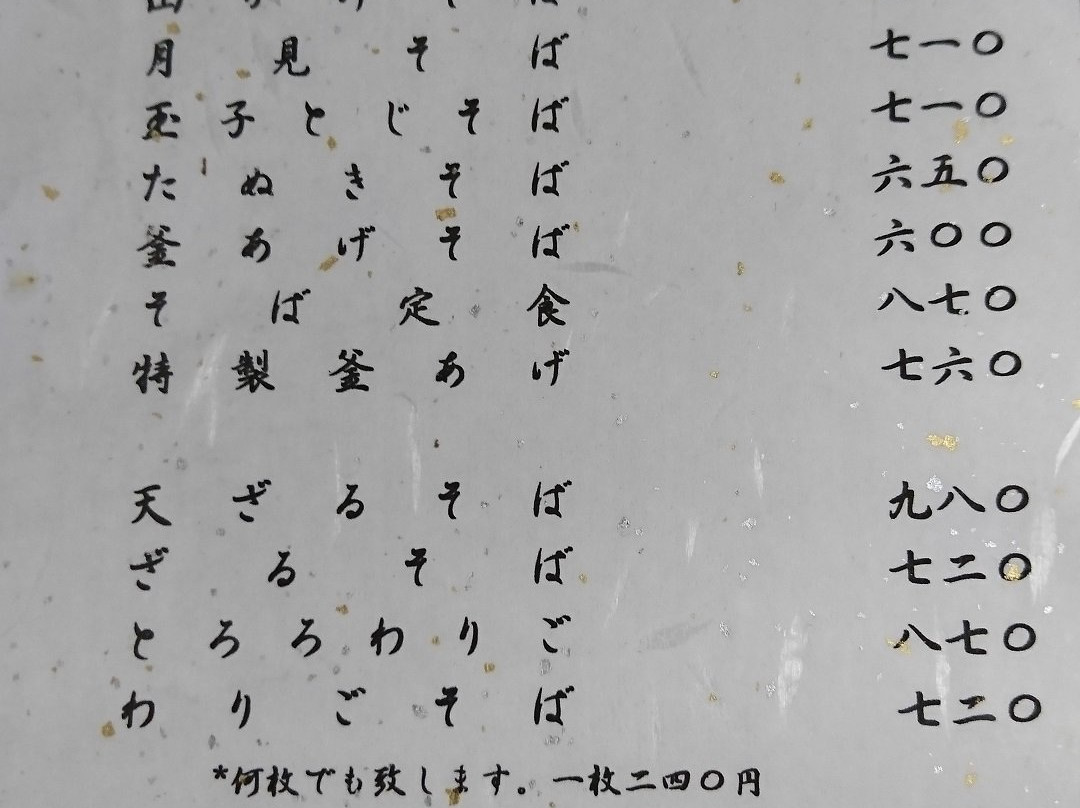 月見そば 七一〇
玉子とじそば 七一〇
たぬきそば 六五〇
釜あげそば 六〇〇
そば定食 八七〇
特製釜あげ 七六〇
天ざるそば 九八〇
ざるそば 七二〇
とろろわりご 八七〇
わりごそば 七二〇
*何枚でも致します。一枚二四〇円